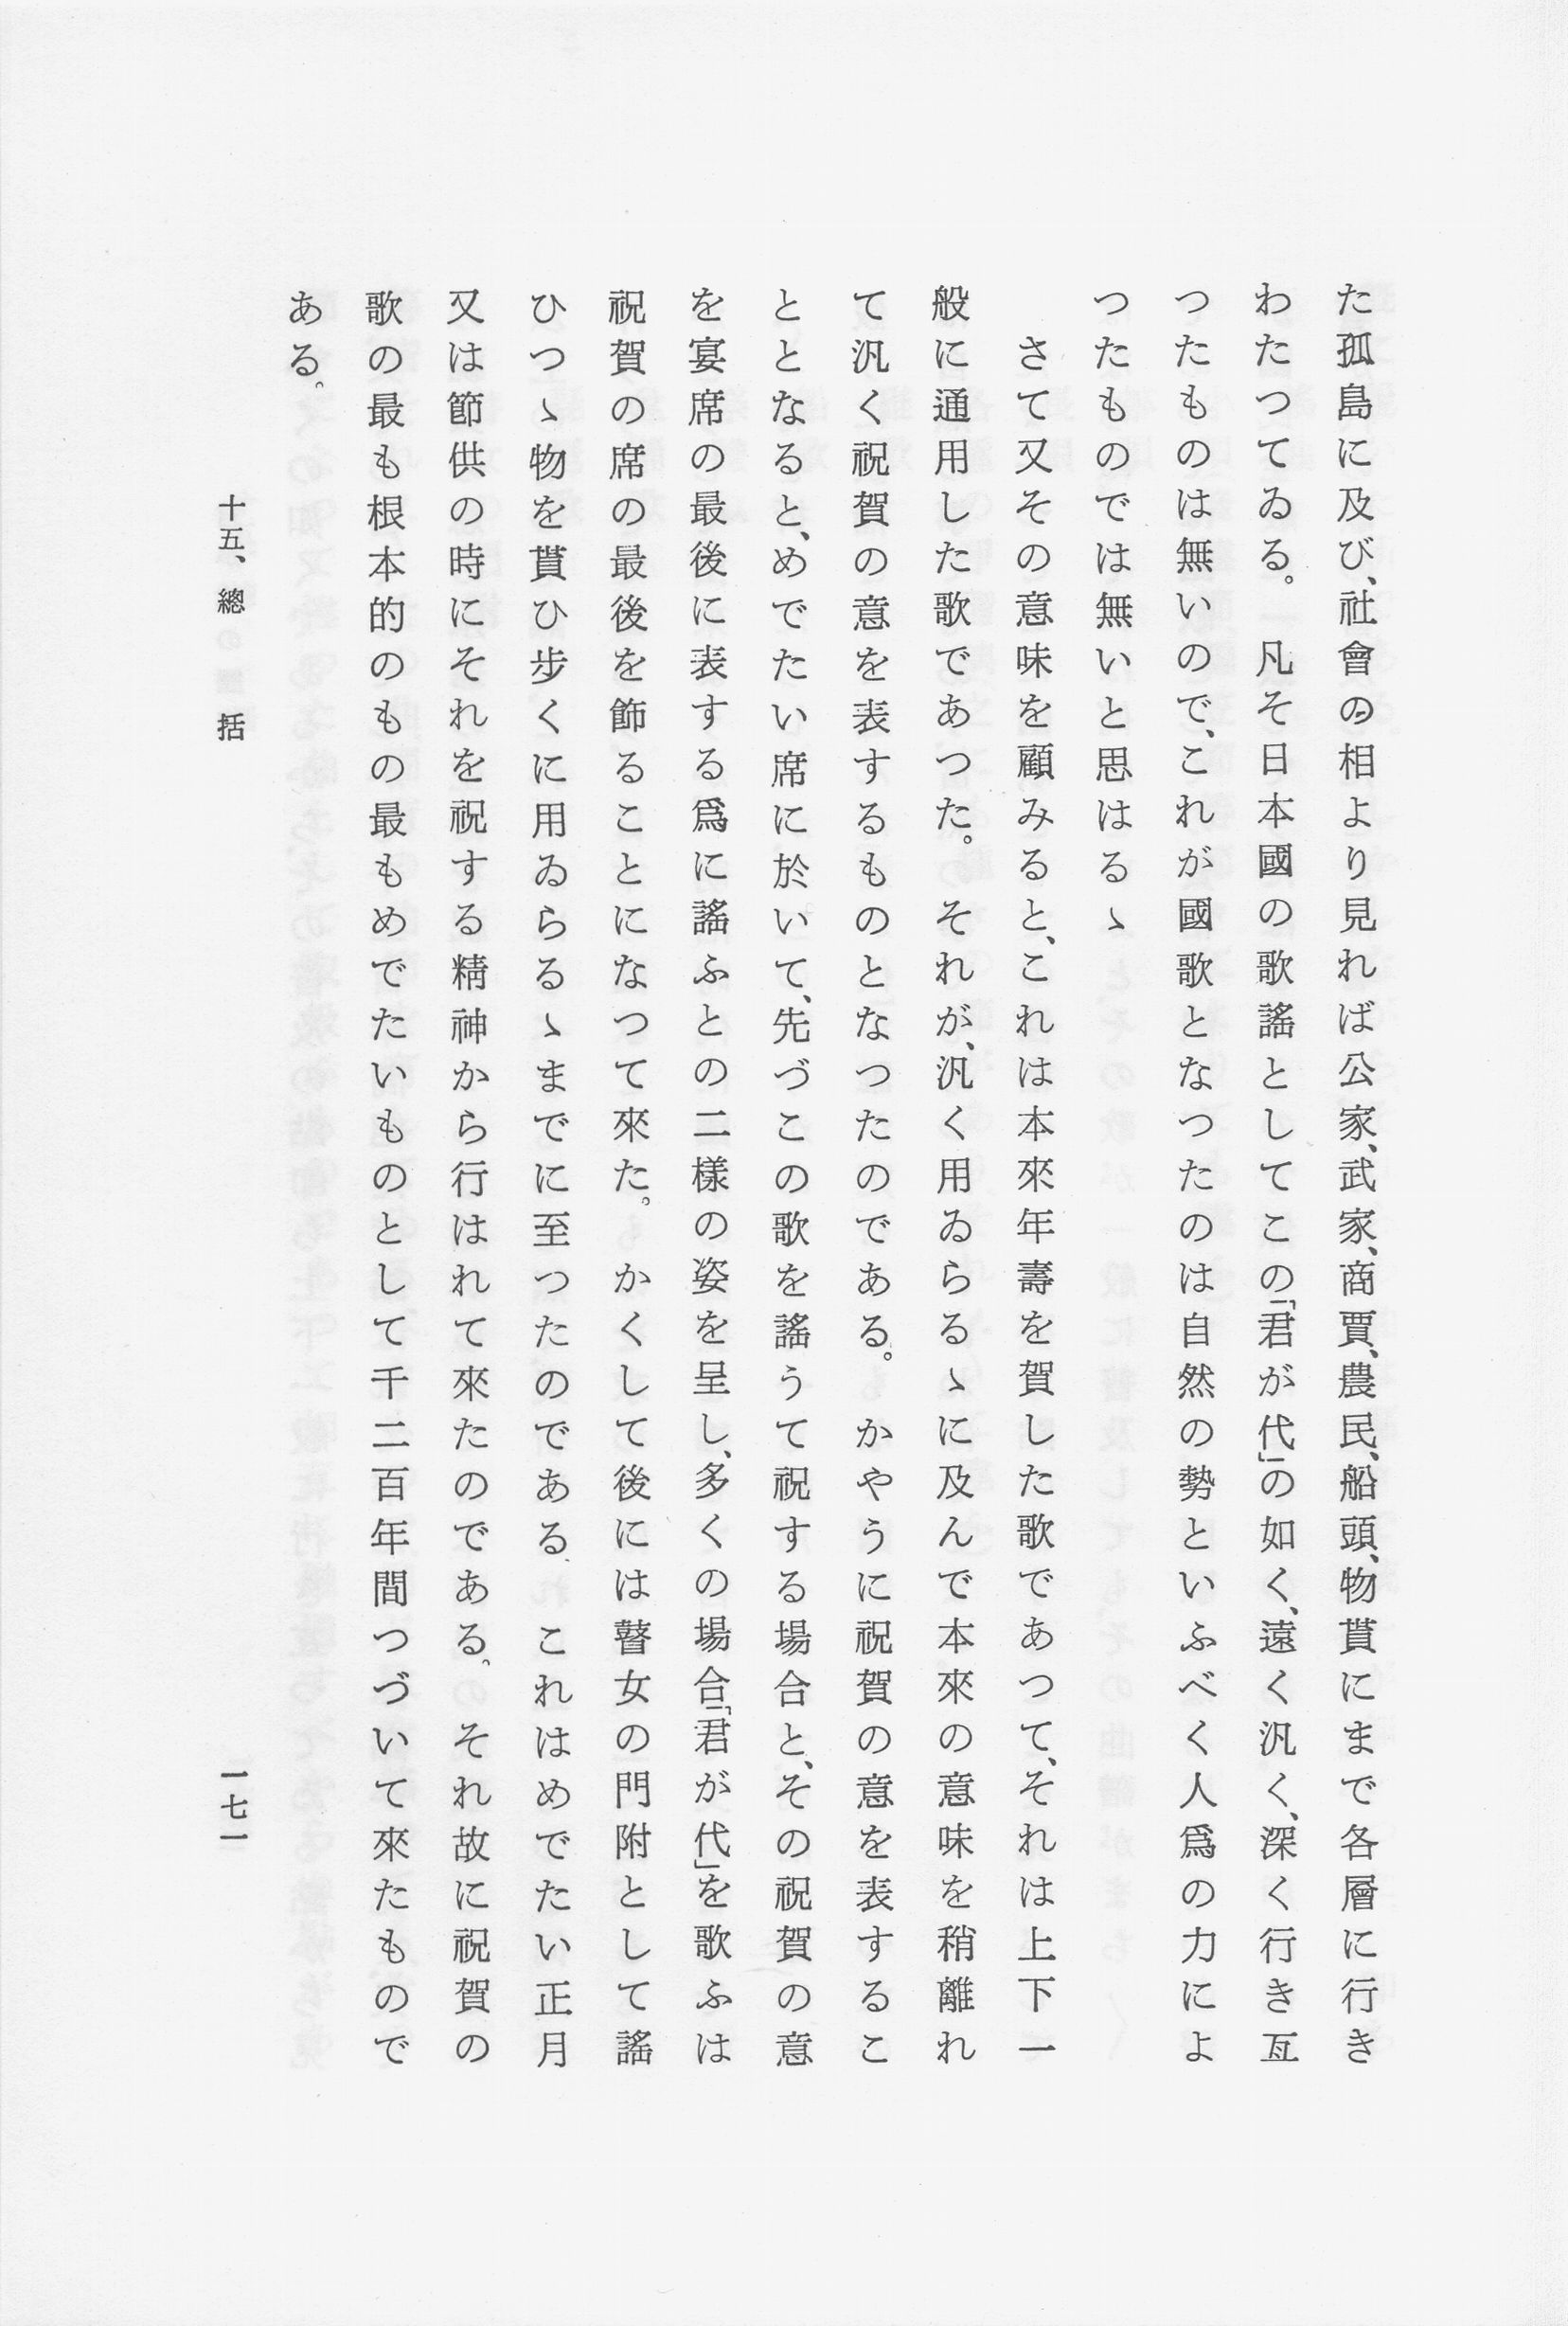 た孤島に及び、社會の相より見れば公家、武家、商賈、農民、船頭、物貰にまで各層に行き
わたつてゐる。凡そ日本國の歌謠としてこの「君が代」の如く、遠く汎く、深く行き亙
つたものは無いので、これが國歌となつたのは自然の勢といふべく人爲の力によ
つたものでは無いと思はるゝ
さて又その意味を顧みると、これは本來年壽を賀した歌であつて、それは上下一
般に通用した歌であつた。それが、汎く用ゐらるゝに及んで本來の意味を稍離れ
て汎く祝賀の意を表するものとなつたのである。かやうに祝賀の意を表するこ
ととなると、めでたい席に於いて、先づこの歌を謠うて祝する場合と、その祝賀の意
を宴席の最後に表する爲に謠ふとの二樣の姿を呈し、多くの場合「君が代」を歌ふは
祝賀の席の最後を飾ることになつて來た。かくして後には瞽女の門附として謠
ひつゝ物を貰ひ步くに用ゐらるゝまでに至つたのである。これはめでたい正月
又は節供の時にそれを祝する精神から行はれて來たのである。それ故に祝賀の
歌の最も根本的のもの最もめでたいものとして千二百年間つづいて來たもので
ある。
十五、總括
一七一